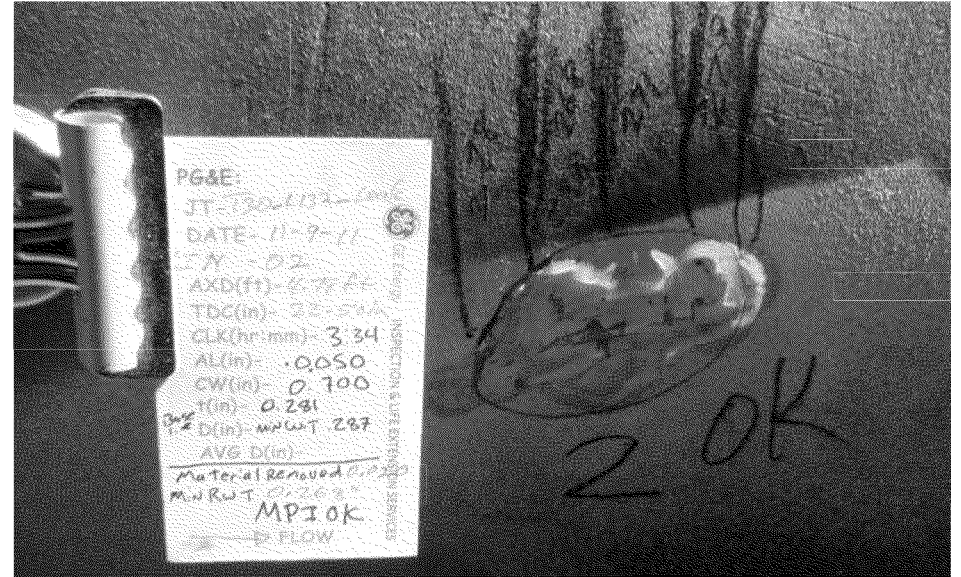 PG&E:
JT-130-
DATE- 11-9-11
IN - 02
AXD(ft)-
TDC(in)-
CLK(hr:mm)- 3 34
AL(in)- .0050
CW(in)- 0.700
t(in)- 0.281
D(in)- MNWT 287
AVG D(in)-
Material Removed
MNRWT
MPI OK
FLOW
GE Energy INSPECTION & LIFE EXTENSION SERVICES
2 OK